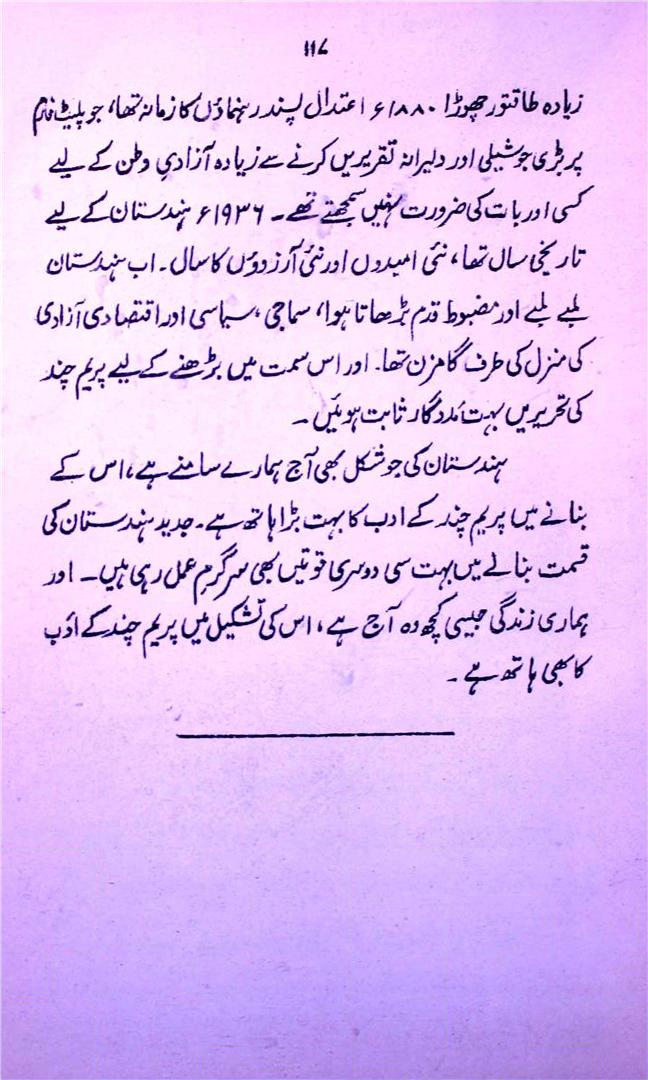 ۱۱۷
زیادہ طاقتور چھوڑا ۱۸۸۰ء اعتدال پسند رہنماؤں کا زمانہ تھا، جو پلیٹ فارم
پر بڑی جوشیلی اور دلیرانہ تقریریں کرنے سے زیادہ آزادیِ وطن کے لیے
کسی اور بات کی ضرورت نہیں سمجھتے تھے۔ ۱۹۳۶ء ہندستان کے لیے
تاریخی سال تھا، نئی امیدوں اور نئی آرزدوؤں کا سال۔ اب ہندستان
لمبے لمبے اور مضبوط قدم بڑھاتا ہوا، سماجی، سیاسی اور اقتصادی آزادی
کی منزل کی طرف گامزن تھا۔ اور اس سمت میں بڑھنے کے لیے پریم چند
کی تحریریں بہت مددگار ثابت ہوئیں۔
ہندستان کی جو شکل بھی آج ہمارے سامنے ہے، اس کے
بنانے میں پریم چند کے ادب کا بہت بڑا ہاتھ ہے۔ جدید ہندستان کی
قسمت بنانے میں بہت سی دوسری قوتیں بھی سرگرمِ عمل رہی ہیں۔ اور
ہماری زندگی جیسی کچھ وہ آج ہے، اس کی تشکیل میں پریم چند کے ادب
کا بھی ہاتھ ہے۔